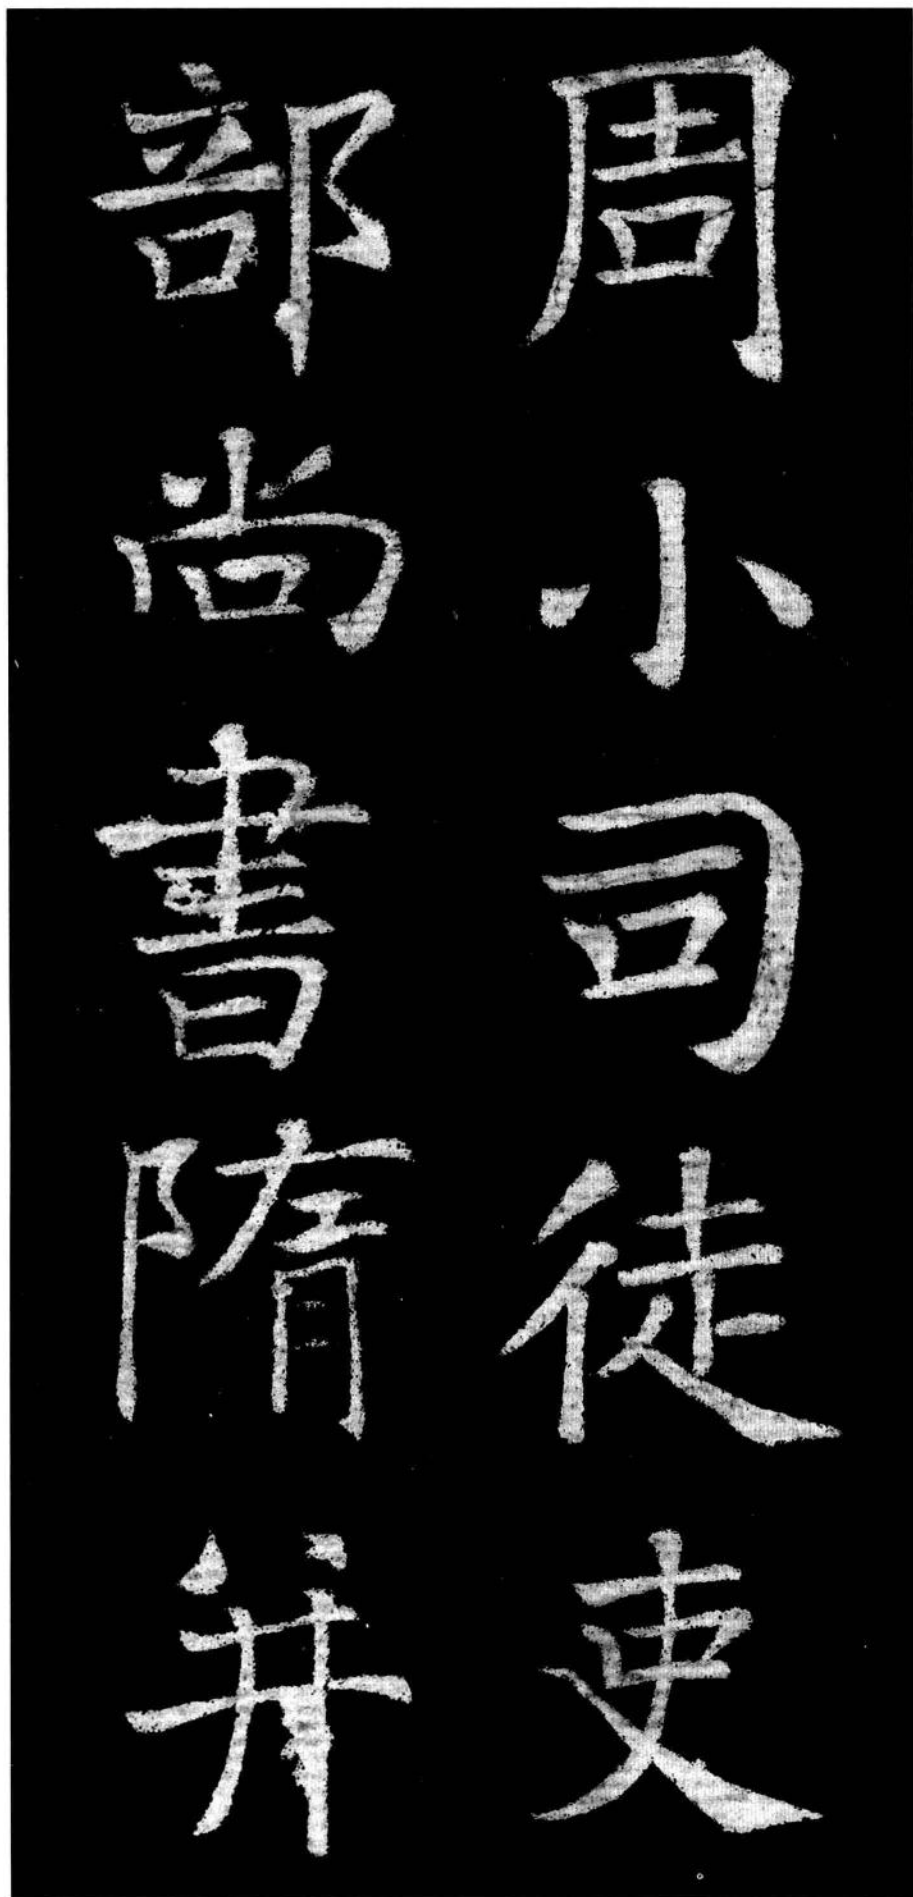 周小司徒吏
部尚書隋并